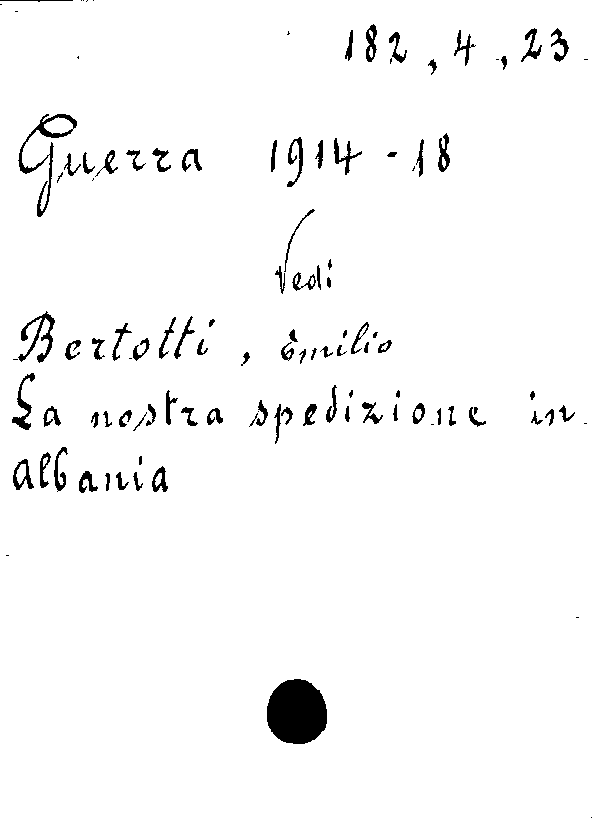 182, 4, 23
Guerra 1914-18
Vedi
Bertotti, Emilio
La nostra spedizione in
Albania